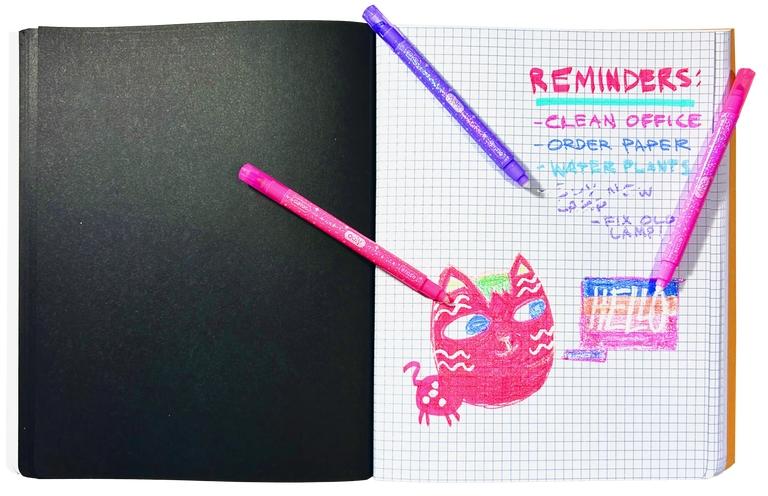 REMINDERS:
-CLEAN OFFICE
-ORDER PAPER
-WATER PLANTS
-BUY NEW
LAMP
-FIX OLD
LAMP!
HELLO
ooly